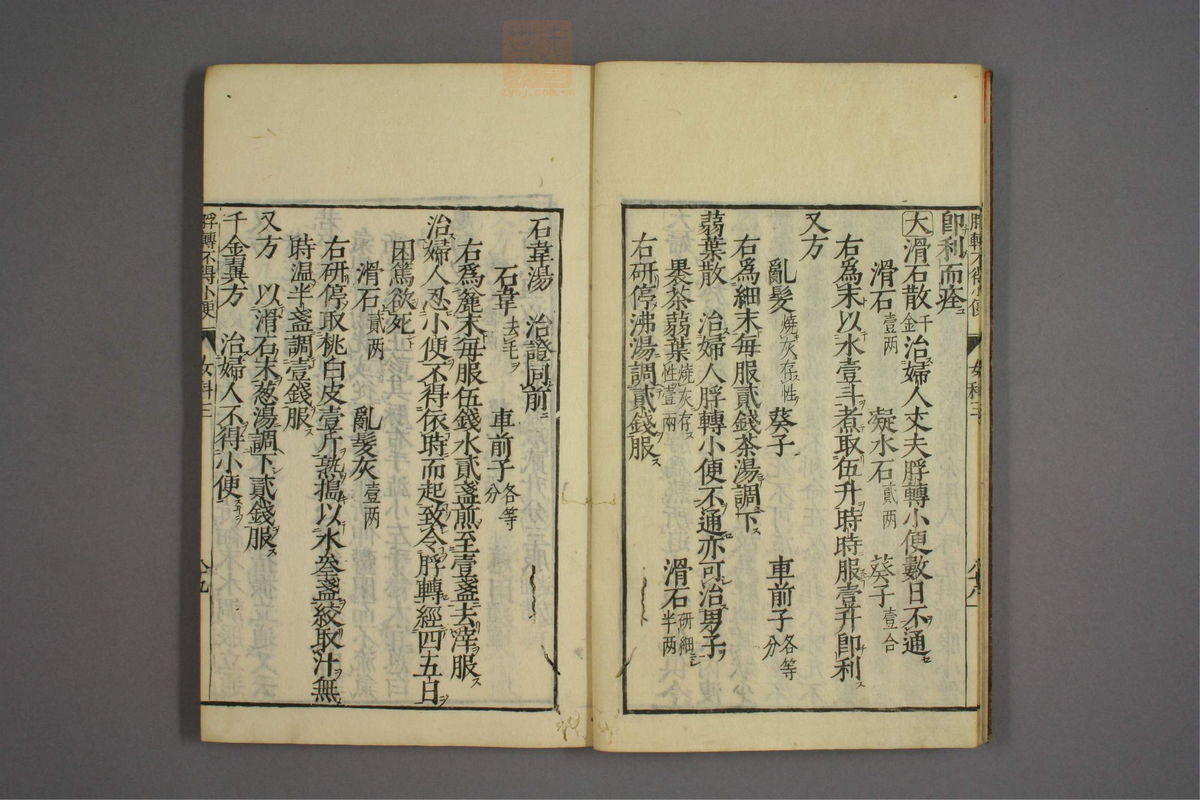 脬轉不得小便
女科三
即利而痊
大滑石散千金治婦人丈夫脬轉小便數日不通
滑石壹两 凝水石貳两 葵子壹合
右爲末以水壹斗煮取伍升時時服壹升即利
又方
亂髮燒灰存性 葵子 車前子各等分
右爲細末每服貳錢茶湯調下
蒻葉散 治婦人脬轉小便不通亦可治男子
褁茶蒻葉燒灰存性壹兩 滑石研細半两
右研停沸湯調貳錢服
石韋湯 治證同前
石韋去毛 車前子各等分
右爲麄末每服伍錢水貳盞煎至壹盞去滓服
治婦人忍小便不得依時而起致令脬轉經四五日
困篤欲死
滑石貳两 亂髮灰壹两
右研停取桃白皮壹斤熟搗以水叄盞絞取汁無
時温半盞調壹錢服
又方 以滑石末葱湯調下貳錢服
千金翼方 治婦人不得小便
脬轉不得小便
女科三